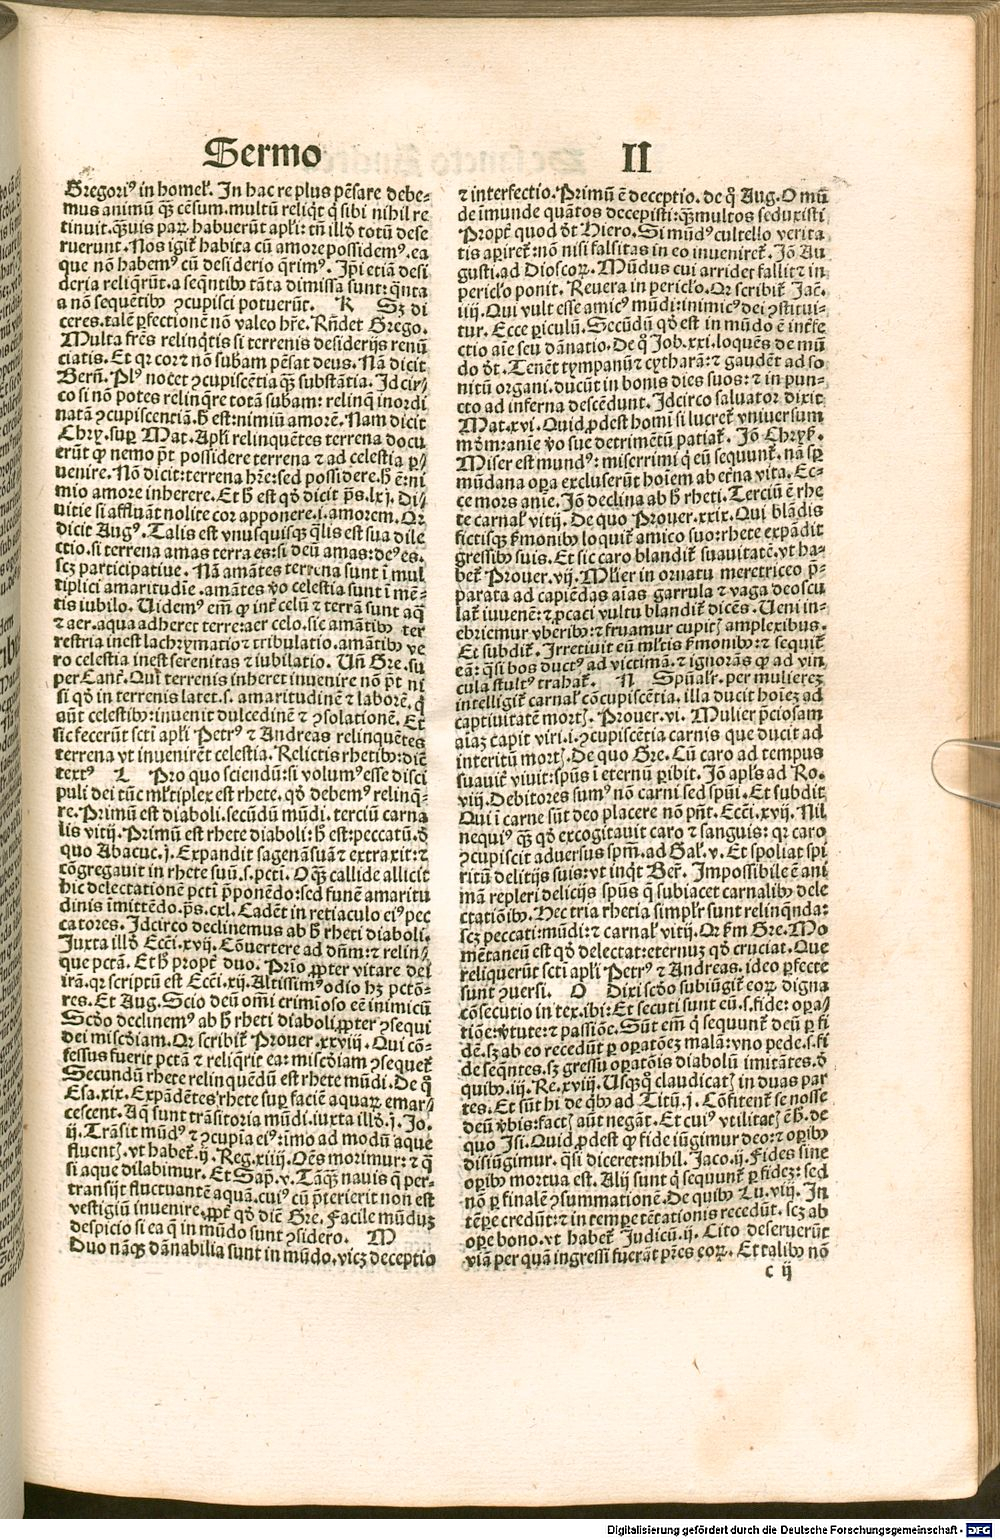 Sermo II
Gregoriꝰ in homeł. In hac re plus pēsare debe⸗
mus animū qȝ̄ cēsum. multū reliqt̄ q̇ sibi nihil re
tinuit. q̄uis paꝝ habuerūt apłi: tn̄ illđ totū dese
ruerunt. Nos igit̄ habita cū amore possidemꝰ. ea
que nō habemꝰ cū desiderio q̄rimꝰ. Ip̄i etiā desi
deria reliq̄rūt. a seq̄ntibꝰ tāta dimissa sunt: q̄nta
a nō sequētibꝰ ꝯcupisci potuerūt. K Sȝ di
ceres. talē ꝑfectionē nō valeo hr̄e. Rn̄det Grego.
Multa fr̄es relinq̄tis si terrenis desiderijs renū
ciatis. Et qr cor ⁊ nō subam pēsat deus. Nā dicit
Bern̄. Plꝰ nocet ꝯcupiscētia qȝ̄ substātia. Idcir⸗
co si nō potes relinq̄re totā subam: relinq̄ inordi
natā ꝯcupiscentiā. h̄ est: nimiū amorē. Nam dicit
Chry. suꝑ Mat. Apłi relinquētes terrena docu
erūt ꝙ nemo pt̄ possidere terrena ⁊ ad celestia ꝑ⸗
venire. Nō dicit: terrena hr̄e: sed possidere. h̄ ē: ni
mio amore inherere. Et h̄ est qđ dicit ps̄. lxj. Di⸗
uitie si affluāt nolite cor apponere. i. amorem. Qr
dicit Augꝰ. Talis est vnusquisqȝ q̄lis est sua dile
ctio. si terrena amas terra es: si deū amas: deꝰ es.
scȝ participatiue. Nā amātes terrena sunt ī mul
tiplici amaritudīe. amātes v̄o celestia sunt ī mē⸗
tis iubilo. Uidemꝰ em̄ ꝙ int̄ celū ⁊ terrā sunt aq̄
⁊ aer. aqua adheret terre: aer celo. sic amātibꝰ ter
restria inest lachrymatio ⁊ tribulatio. amātibꝰ ve
ro celestia inest serenitas ⁊ iubilatio. Un̄ Gre. su
per Cant̄. Qui terrenis inheret inuenire nō pt̄ ni
si qđ in terrenis latet. s. amaritudinē ⁊ laborē. q̇
aūt celestibꝰ: inuenit dulcedinē ⁊ ꝯsolationē. Et
sic fecerūt scti apłi Petrꝰ ⁊ Andreas relinquētes
terrena vt inuenirēt celestia. Relictis rhetibꝰ: diē
textꝰ L Pro quo sciendū: si volumꝰ esse disci
puli dei tūc młtiplex est rhete. qđ debemꝰ relinq̄⸗
re. Primū est diaboli. secūdū mūdi. terciū carna
lis vitij. Primū est rhete diaboli: h̄ est: peccatū. đ
quo Abacuc. j. Expandit sagenā suā ⁊ extraxit: ⁊
cōgregauit in rhete suū. s. pcti. Oqȝ callide allicit
hic delectationē pcti ꝓponēdo: sed funē amaritu
dinis īmittēdo. ps̄. cxl. Cadēt in retiaculo eiꝰ pec
catores. Idcirco declinemus ab h̄ rheti diaboli.
Juxta illđ Ecci. xvij. Cōuertere ad dn̄m: ⁊ relin⸗
que pctā. Et h̄ propt̄ duo. Prīo ꝓpter vitare dei
irā. qr scriptū est Ecci. xij. Altissimꝰ odio hȝ pctō⸗
res. Et Aug. Scio deū om̄i crimīoso eē inimicū
Scđo declinemꝰ ab h̄ rheti diaboli ꝓpter ꝯsequi
dei miscđiam. Qr scribit̄ Prouer. xxviij. Qui cō⸗
fessus fuerit pctā ⁊ reliq̄rit ea: miscđiam ꝯsequet̄
Secundū rhete relinquēdū est rhete mūdi. De q̊
Esa. xix. Expādētes rhete suꝑ faciē aquaꝝ emar⸗
cescent. Aq̄ sunt trāsitoria mūdi. iuxta illđ. j. Jo.
ij. Trāsit mūdꝰ ⁊ ꝯcupīa eiꝰ: īmo ad modū aque
fluentꝭ. vt habet̄. ij. Reg. xiiij. Oēs morimur: ⁊ q̄
si aque dilabimur. Et Sap̄. v. Tāqȝ̄ nauis q̄ per⸗
transijt fluctuantē aquā. cuiꝰ cū p̄terierit non est
vestigiū inuenire. ꝓpt̄ qđ diē Gre. Facile mūduȝ
despicio si ea q̄ in mūdo sunt ꝯsidero. M
Duo nāqȝ dānabilia sunt in mūdo. vicȝ deceptio
⁊ interfectio. Primū ē deceptio. de q̊ Aug. O mū
de īmunde quātos decepisti: qȝ̄ multos seduxisti
Propt̄ quod đt Hiero. Si mūdꝰ cultello verita
tis aꝑiret̄: nō nisi falsitas in eo inueniret̄. Jō Au
gusti. ad Dioscoꝝ. Mūdus cui arridet fallit ⁊ in
pericło ponit. Reuera in pericło. Qr scribit̄ Jac̄.
iiij. Qui vult esse amicꝰ mūdi: inimicꝰ dei ꝯstitui⸗
tur. Ecce ꝑiculū. Secūdū qđ est in mūdo ē int̄fe
ctio aīe seu dānatio. De q̊ Job. xxi. loquēs de mū
do đt. Tenēt tympanū ⁊ cytharā: ⁊ gaudēt ad so
nitū organi. ducūt in bonis dies suos: ⁊ in pun⸗
cto ad inferna descēdunt. Idcirco saluator dixit
Mat. xvi. Quid ꝓdest homī si lucret̄ vniuersum
mūdum: anīe v̄o sue detrimētū patiat̄. Jō Chrys̄.
Miser est mundꝰ: miserrimi q̇ eū sequunt̄. nā sꝑ
mūdana oꝑa excluserūt hoīem ab et̄na vita. Ec⸗
ce mors anīe. Jō declina ab h̄ rheti. Terciū ē rhe
te carnał vitij. De quo Prouer. xxix. Qui blādis
fictisqȝ ẜmonibꝰ loquit̄ amico suo: rhete expādit
gressibꝰ suis. Et sic caro blandit̄ suauitatē. vt ha⸗
bet̄ Prouer. vij. Młier in ornatu meretriceo p̄⸗
parata ad capiēdas aīas garrula ⁊ vaga deoscu
lat̄ iuuenē: ⁊ ꝓcaci vultu blandit̄ dicēs. Ueni in⸗
ebriemur vberibꝰ: ⁊ fruamur cupitꝭ amplexibus.
Et subdit̄. Irretiuit eū młtis ẜmonibꝰ: ⁊ sequit̄
eā: q̄si bos ductꝰ ad victimā. ⁊ ignorās ꝙ ad vin
cula stultꝰ trahat̄. N Spūał̄. per mulierez
intelligit̄ carnał cōcupiscētia. illa ducit hoīez ad
captiuitatē mortꝭ. Prouer. vi. Mulier p̄ciosam
aīaȝ capit viri. i. ꝯcupiscētia carnis que ducit ad
interitū mortꝭ. De quo Gre. Cū caro ad tempus
suauit̄ viuit: spūs ī eternū ꝑibit. Jō apłs ad Ro.
viij. Debitores sumꝰ nō carni sed spūi. Et subdit
Qui ī carne sūt deo placere nō pn̄t. Ecci. xvij. Nil
nequiꝰ qȝ̄ qđ excogitauit caro ⁊ sanguis: qr caro
ꝯcupiscit aduersus spm̄. ad Gał. v. Et spoliat spi
ritū delitijs suis: vt inqt̄ Ber̄. Impossibile ē ani
mā repleri delicijs spūs q̄ subiacet carnalibꝰ dele
ctatiōibꝰ. Hec tria rhetia simplr̄ sunt relinq̄nda:
scȝ peccati: mūdi: ⁊ carnał vitij. Qr ẜm Gre. Mo
mētaneū est qđ delectat: eternuȝ qđ cruciat. Que
reliquerūt scti apłi Petrꝰ ⁊ Andreas. ideo ꝑfecte
sunt ꝯuersi. O Dixi scđo subiūgit̄ eoꝝ digna
cōsecutio in tex. ibi: Et secuti sunt eū. s. fide: oꝑa⸗
tiōe: v̄tute: ⁊ passiōe. Sūt em̄ q̇ sequunt̄ deū ꝑ fi
dē. sȝ ab eo recedūt ꝑ oꝑatōeȝ malā: vno pede. s. fi
de seq̄ntes. sȝ gressu oꝑatōis diabolū imitātes. đ
quibꝰ. iij. Re. xviij. Usqȝq̊ claudicatꝭ in duas par
tes. Et sūt hi de qb̄ꝰ ad Titū. j. Cōfitent̄ se nosse
deū v̄bis: factꝭ aūt negāt. Et cuiꝰ vtilitatꝭ ē h̄. de
quo Isi. Quid ꝓdest ꝙ fide iūgimur deo: ⁊ oꝑibꝰ
disiūgimur. q̄si diceret: nihil. Jaco. ij. Fides sine
oꝑibꝰ mortua est. Alij sunt q̇ sequunt̄ ꝑ fidez: sed
nō ꝑ finalē ꝯsummationē. De quibꝰ Lu. viij. In
tēꝑe credūt: ⁊ in tempe tētationis recedūt. scȝ ab
oꝑe bono. vt habet̄ Judicū. ij. Cito deseruerūt
viā per quā ingressi fuerāt pr̄es eoꝝ. Et talibꝰ nō
c ij
Digitalisierung gefördert durch die Deutsche Forschungsgemeinschaft - DFG